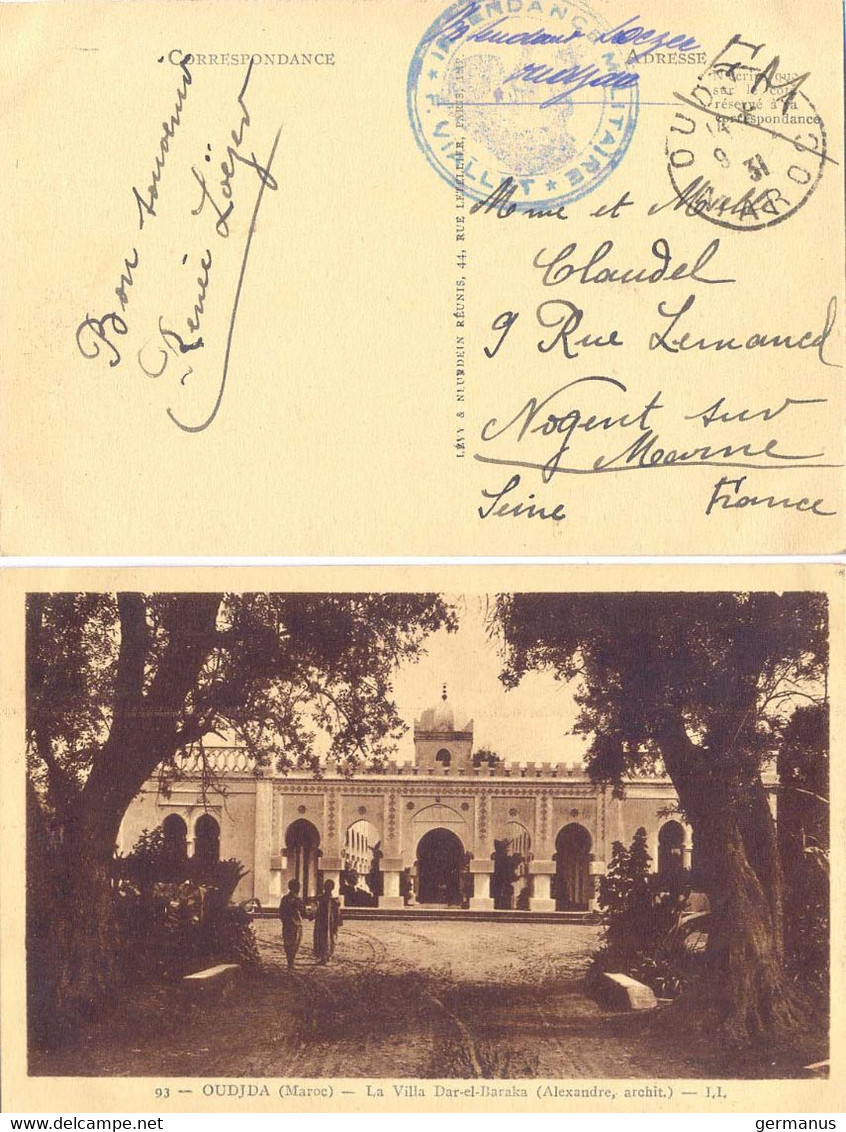 CORRESPONDANCE
ADRESSE
INTENDANCE MILITAIRE
★ F. VIALLET ★
Loezer
F M
N'écrire que
sur le côté
réservé à la
correspondance
OUDJDA
MAROC
9 31
Bon souvenir
Renée Löezer
LÉVY & NEURDEIN RÉUNIS, 44, RUE LETELLIER, PARIS, IMP.
Mme et Melle
Claudel
9 Rue Lemancel
Nogent sur
Marne
Seine France
93 — OUDJDA (Maroc) — La Villa Dar-el-Baraka (Alexandre, archit.) — LL
germanus